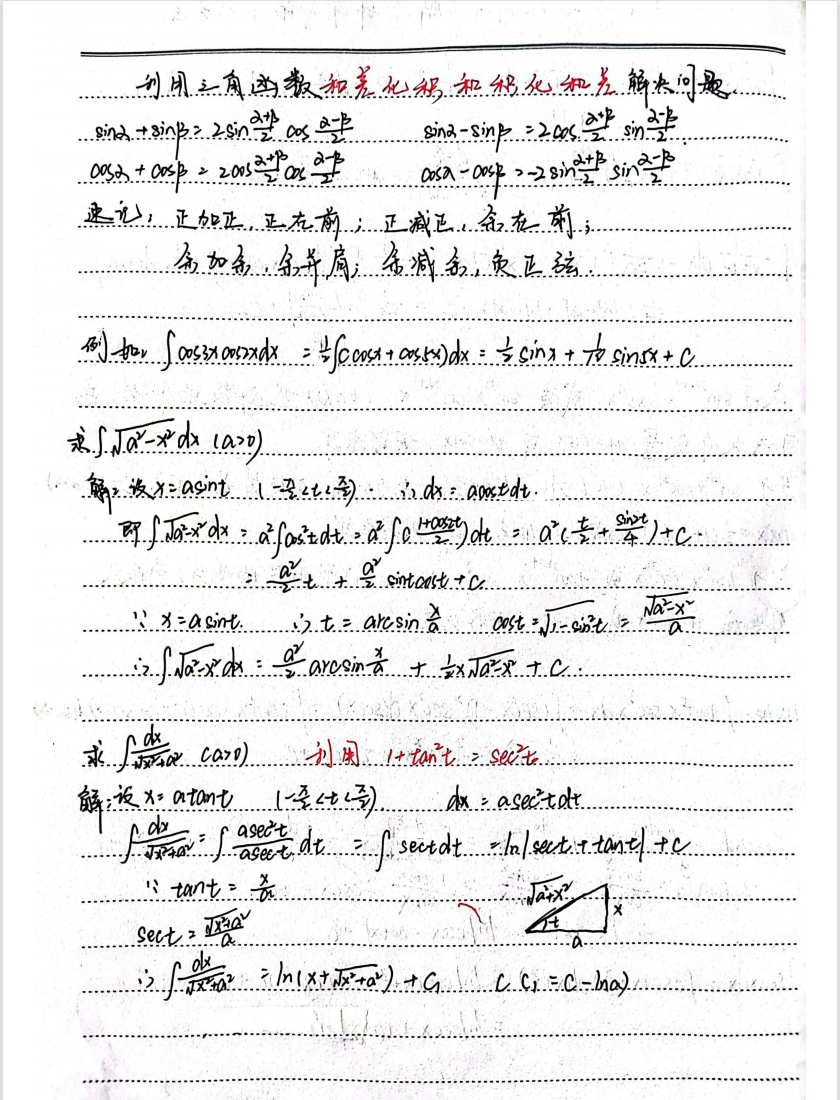 利用三角函数和差化积和积化和差解决问题.
sinα+sinβ=2sin(α+β)/2 cos(α-β)/2  sinα-sinβ=2cos(α+β)/2 sin(α-β)/2
cosα+cosβ=2cos(α+β)/2 cos(α-β)/2  cosα-cosβ=-2sin(α+β)/2 sin(α-β)/2
速记: 正加正,正在前; 正减正,余在前;
余加余,余并肩; 余减余,负正弦.
例如: ∫cos3xcos2xdx = 1/2∫(cosx+cos5x)dx = 1/2 sinx + 1/10 sin5x + C
求∫√(a²-x²)dx (a>0)
解: 设x=asint (-π/2<t<π/2). ∴dx=acostdt.
即∫√(a²-x²)dx = a²∫cos²tdt = a²∫((1+cos2t)/2)dt = a²(t/2 + sin2t/4)+C.
= a²/2 t + a²/2 sintcost+C
∵ x=asint. ∴ t=arcsin x/a  cost=√(1-sin²t) = √(a²-x²)/a
∴∫√(a²-x²)dx = a²/2 arcsin x/a + 1/2 x√(a²-x²) + C.
求∫dx/√(x²+a²) (a>0)  利用 1+tan²t=sec²t
解: 设x=atant (-π/2<t<π/2) dx=asec²tdt
∫dx/√(x²+a²) = ∫asec²t/asect dt = ∫sectdt = ln|sect+tant|+C
∵ tant = x/a
√(a²+x²)
x
t
a
sect = √(x²+a²)/a
∴∫dx/√(x²+a²) = ln(x+√(x²+a²)) + C₁  (C₁=C-lna)